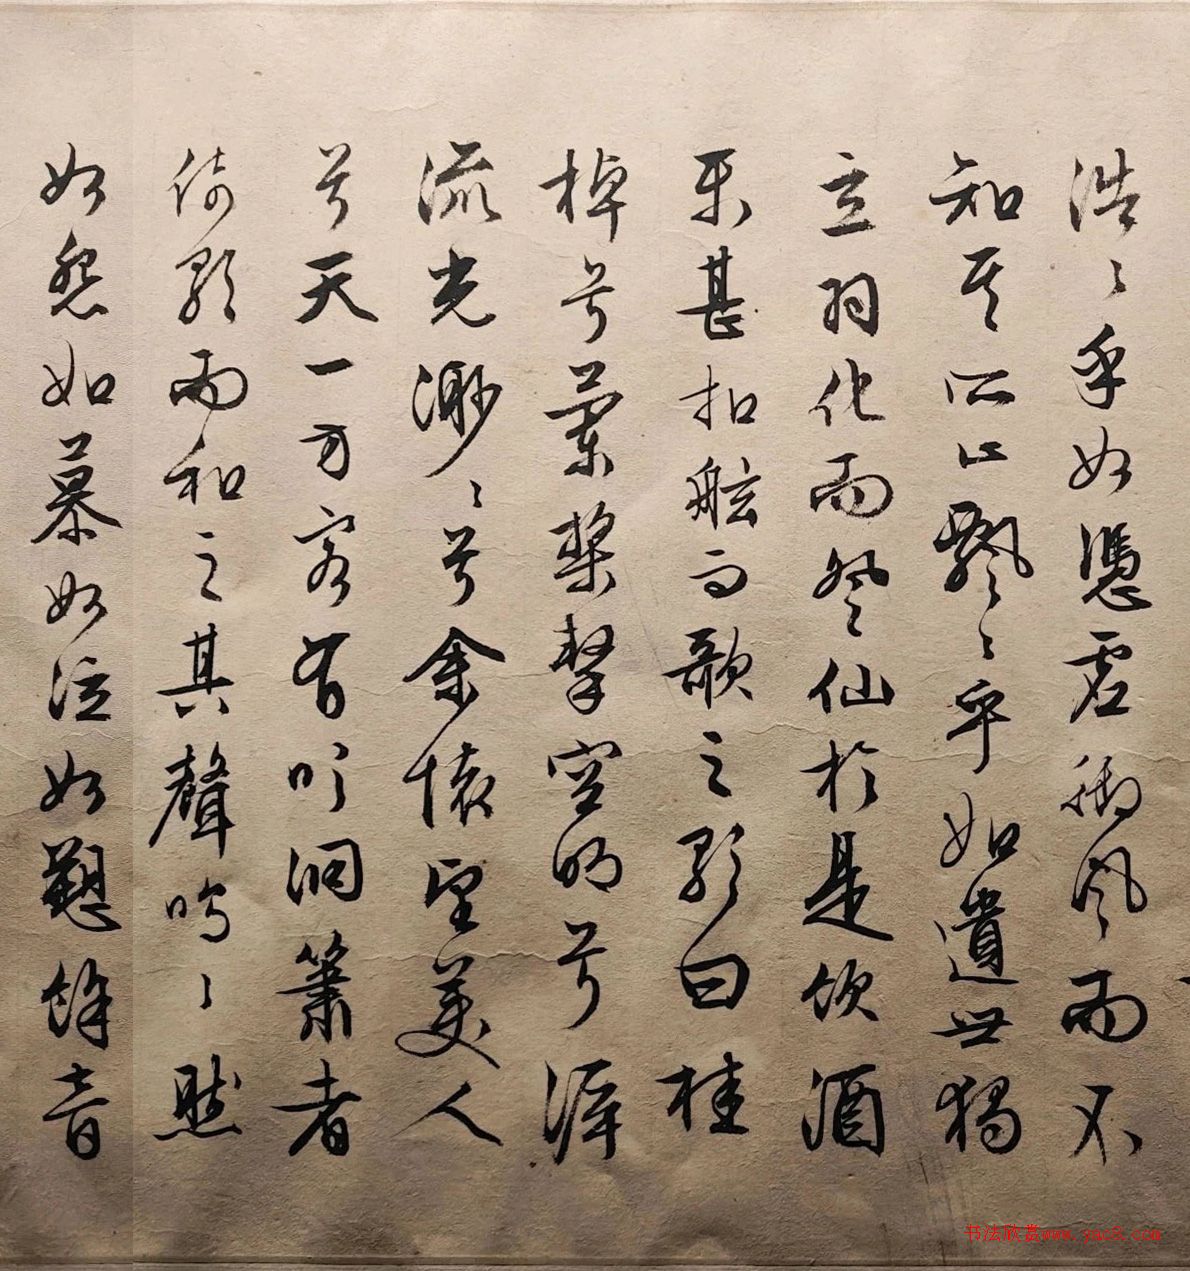 浩〻乎如憑虛御風而不
知其所止飄〻乎如遺世獨
立羽化而登仙於是飲酒
樂甚扣舷而歌之歌曰桂
棹兮蘭槳擊空明兮泝
流光渺〻兮余懷望美人
兮天一方客有吹洞簫者
倚歌而和之其聲嗚〻然
如怨如慕如泣如愬餘音
书法欣赏www.yac8.com